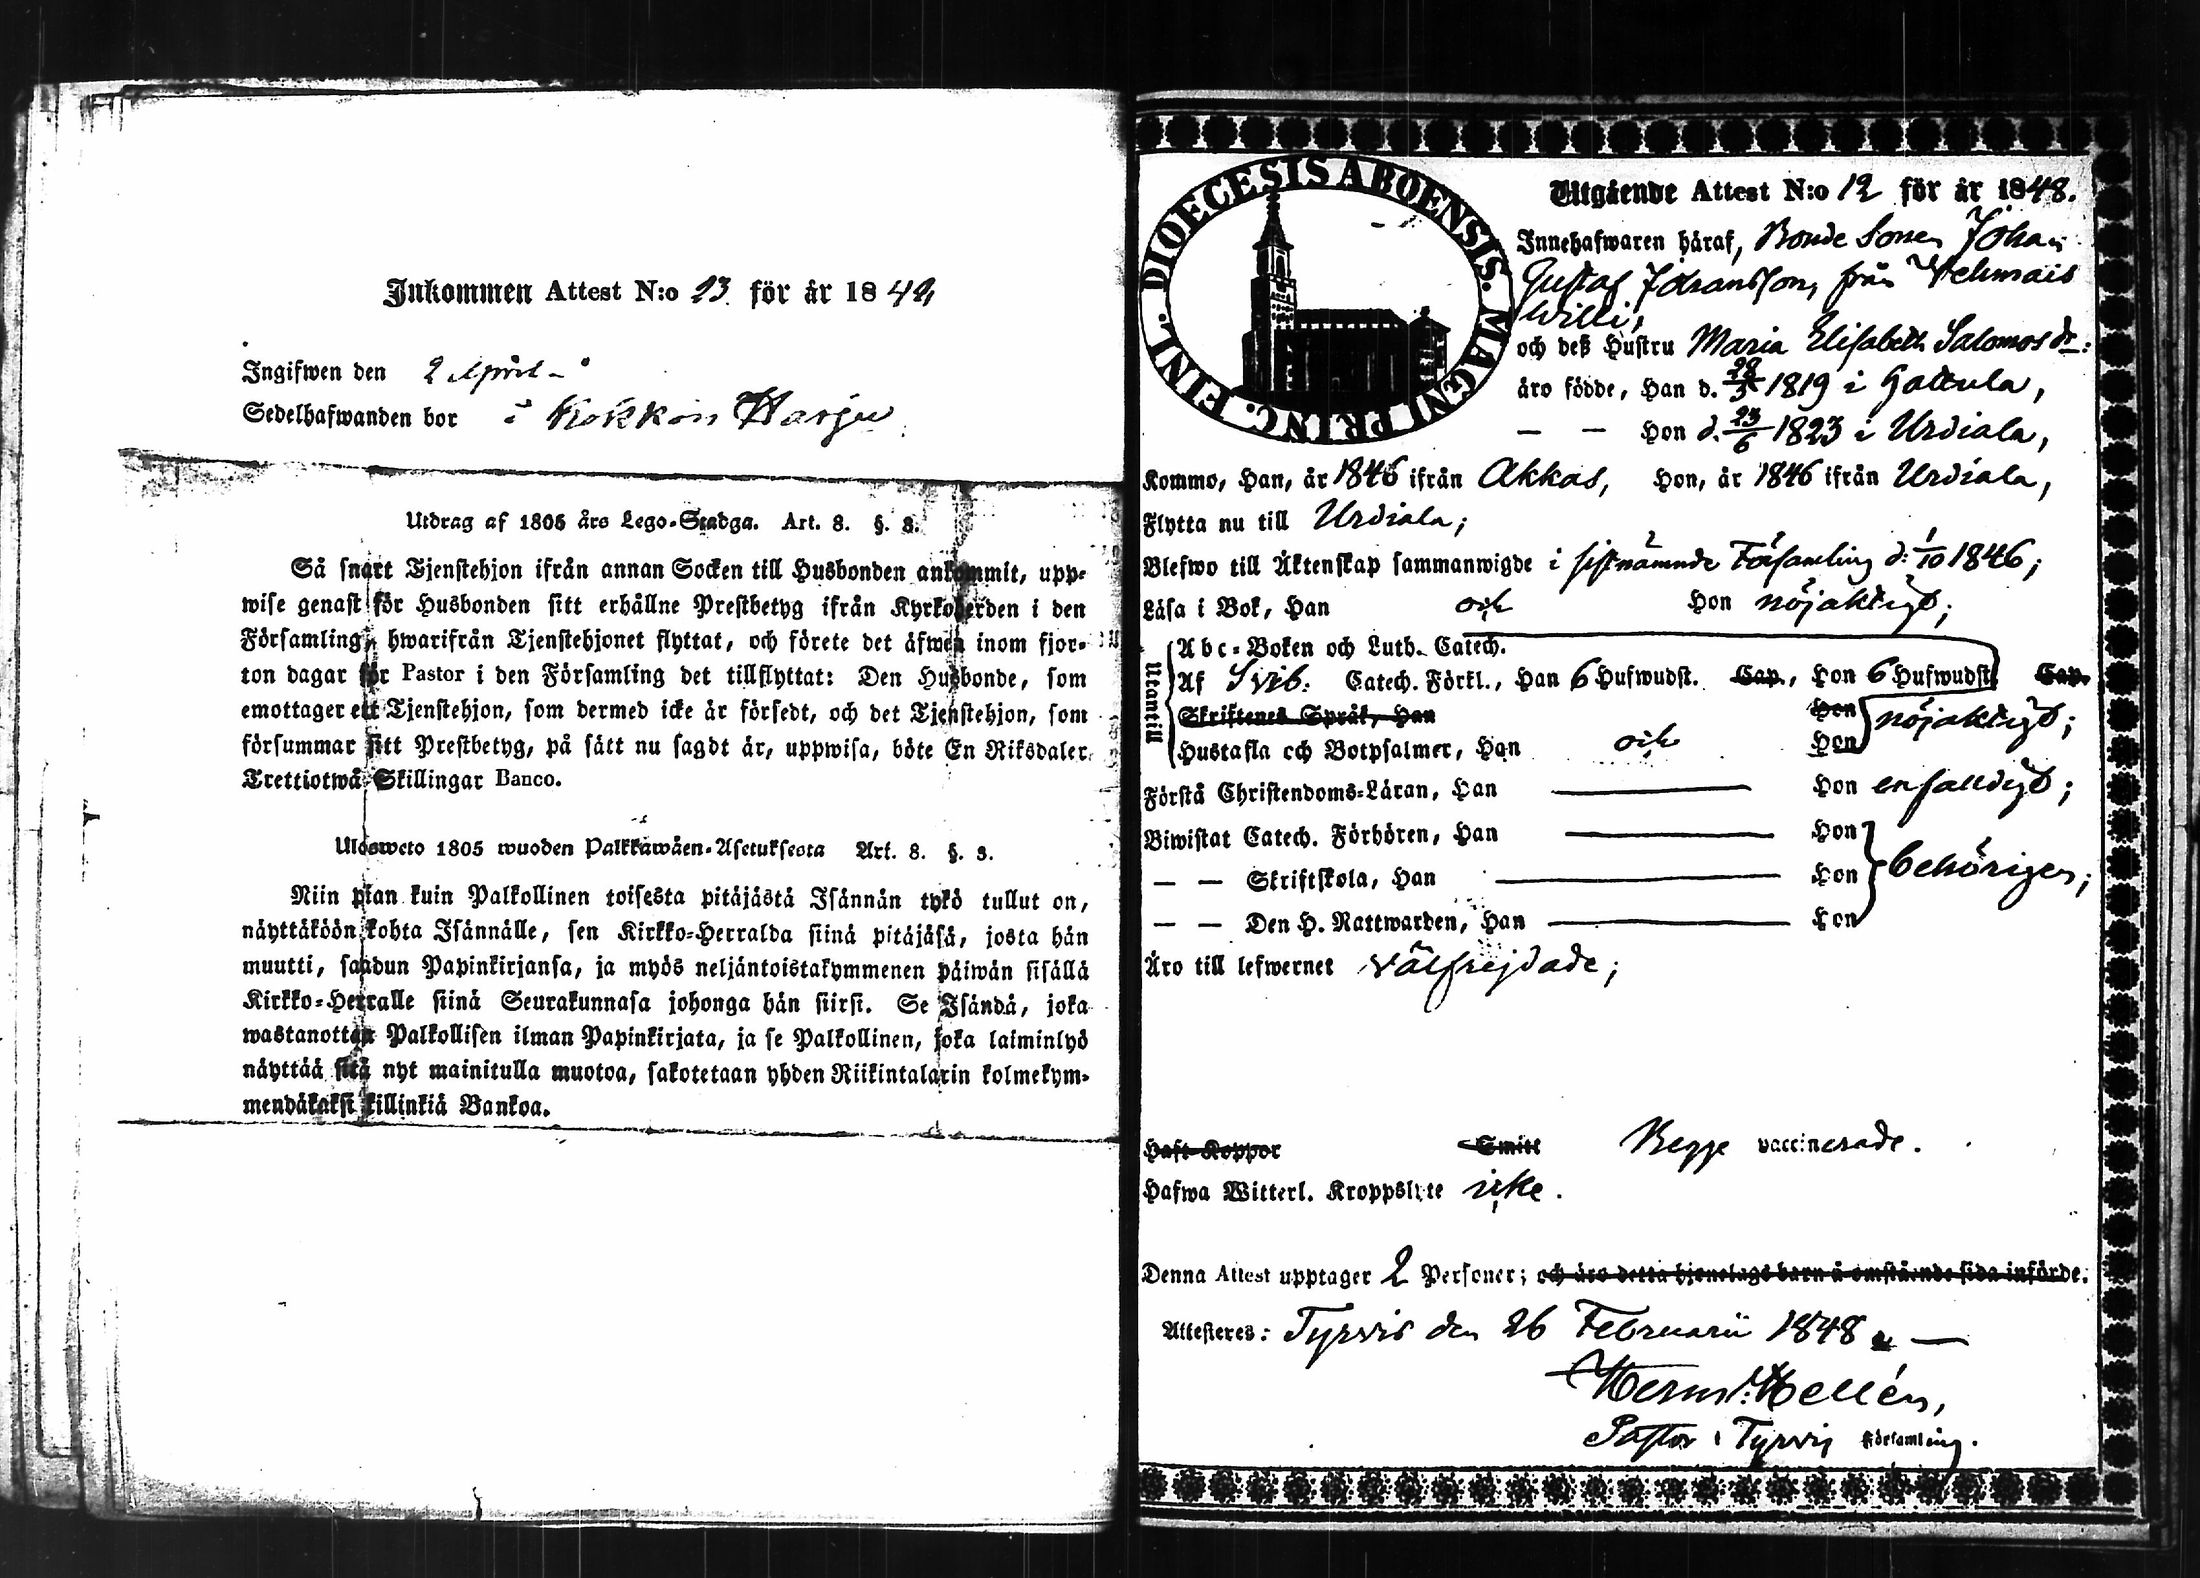 Inkommen Attest N:o 23. för år 1842,
Ingifwen den 2 April
Sedelhafwanden bor i Kokkon Harju
Utdrag af 1805 års Lego-Stadga. Art. 8. §. 3.
Så snart Tjenstehjon ifrån annan Socken till Husbonden ankommit, upp-
wise genast för Husbonden sitt erhållne Prestbetyg ifrån Kyrkoherden i den
Församling, hwarifrån Tjenstehjonet flyttat, och förete det äfwen inom fjor-
ton dagar för Pastor i den Församling det tillflyttat: Den Husbonde, som
emottager ett Tjenstehjon, som dermed icke är försedt, och det Tjenstehjon, som
försummar sitt Prestbetyg, på sätt nu sagdt är, uppwisa, böte En Riksdaler
Trettiotwå Skillingar Banco.
Ulosweto 1805 wuoden Palkkawäen-Asetuksesta Art. 8. §. 3.
Niin pian kuin Palkollinen toisesta pitäjästä Isännän tykö tullut on,
näyttäköön kohta Isännälle, sen Kirkko-Herralda siinä pitäjäsä, josta hän
muutti, saadun Papinkirjansa, ja myös neljäntoistakymmenen päiwän sisällä
Kirkko-Herralle siinä Seurakunnasa johonga hän siirsi. Se Isändä, joka
wastanottaa Palkollisen ilman Papinkirjata, ja se Palkollinen, joka laiminlyö
näyttää sitä nyt mainitulla muotoa, sakotetaan yhden Riikintalarin kolmekym-
mendäkaksi killinkiä Bankoa.
DIOECESIS ABOENSIS. MAGNI PRINC. FINL.
Utgående Attest N:o 12 för år 1848.
Innehafwaren häraf, Bonde Sonen Johan
Gustaf Johansson, från Wehmais
Willi,
och deß Hustru Maria Elisabeth Salomos dr:
äro födde, Han d. 28/5 1819 i Gattula,
— — Hon d. 23/6 1823 i Urdiala,
Kommo, Han, år 1846 ifrån Akkas, Hon, år 1846 ifrån Urdiala,
Flytta nu till Urdiala;
Blefwo till Äktenskap sammanwigde i sistnämnde Församling d: 1/10 1846;
Läsa i Bok, Han och Hon nöjaktigt;
Utantill
Abc-Boken och Luth. Catech.
Af Svib: Catech. Förkl., Han 6 Hufwudst. Cap., Hon 6 Hufwudst. Cap.
Skriftenes Språk, Han Hon nöjaktigt;
Hustafla och Botpsalmer, Han och Hon
Förstå Christendoms-Läran, Han — Hon enfaldigt;
Biwistat Catech. Förhören, Han — Hon
— — Skriftskola, Han — Hon behörigen;
— — Den H. Nattwarden, Han — Hon
Äro till lefwernet välfrejdade;
Haft Koppor Smitt Begge vaccinerade.
Hafwa Witterl. Kroppslyte icke.
Denna Attest upptager 2 Personer; och äro detta hjonelags barn å omstående sida införde.
Attesteres: Tyrvis den 26 Februarii 1848. —
Herm: Hellén,
Pastor i Tyrvis Församling.